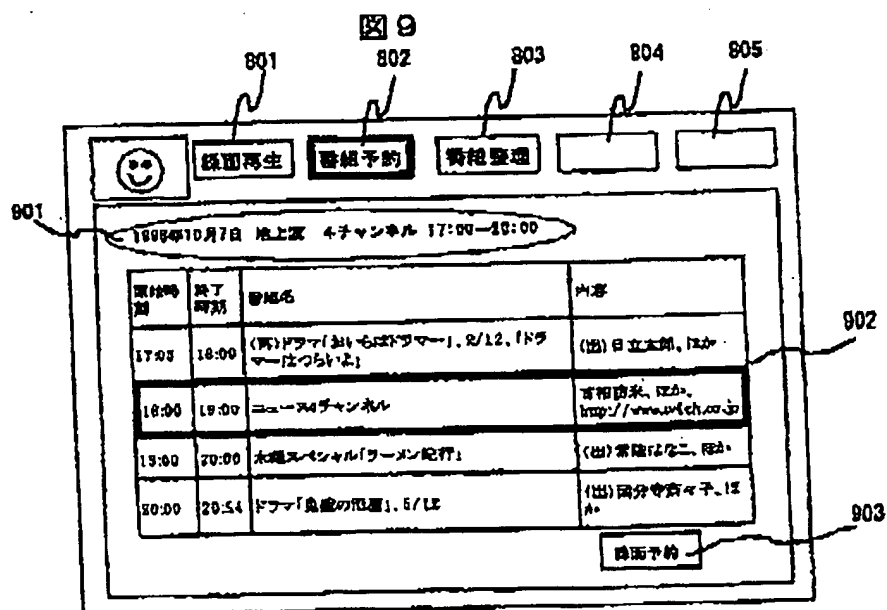 図9
801 802 803 804 805
録画再生 番組予約 番組整理
901
10月7日 地上波 4チャンネル 17:00―20:00
開始時刻 終了時刻 番組名 内容
902
17:05 18:00 (再)ドラマ「おいらはドラマー」、2/12、「ドラマーはつらいよ」 (出)日立太郎、ほか
18:00 19:00 ニュース4チャンネル 首相訪米、ほか、
20:00 木曜スペシャル「ラーメン紀行」 (出)常陸はなこ、ほか
20:00 20:54 ドラマ「 」、5/12 (出)国分寺 子、ほか
録画予約
903